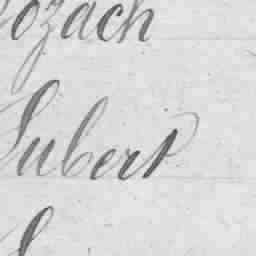 ozach
Subert
S